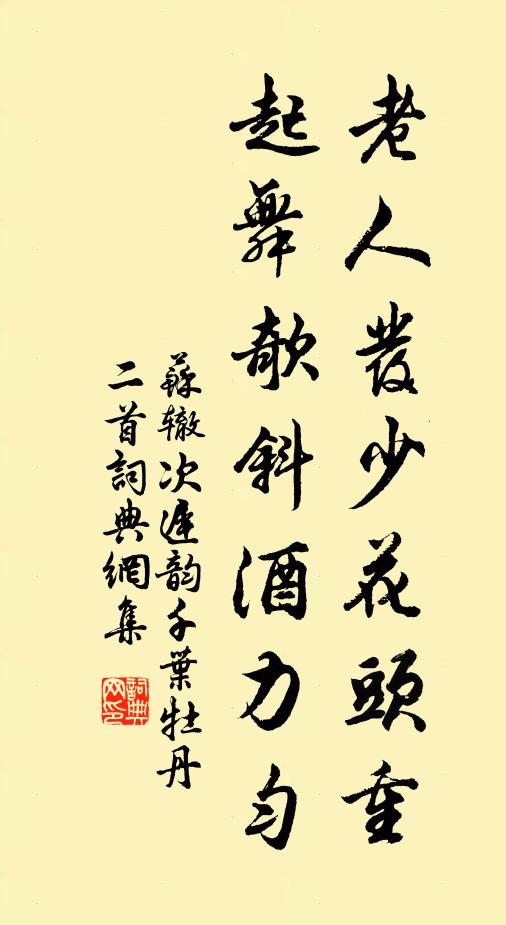 老人發少花頭重
起舞欹斜酒力勻
蘇辙次遲韵千葉牡丹
二首詞典網集
詞典網印